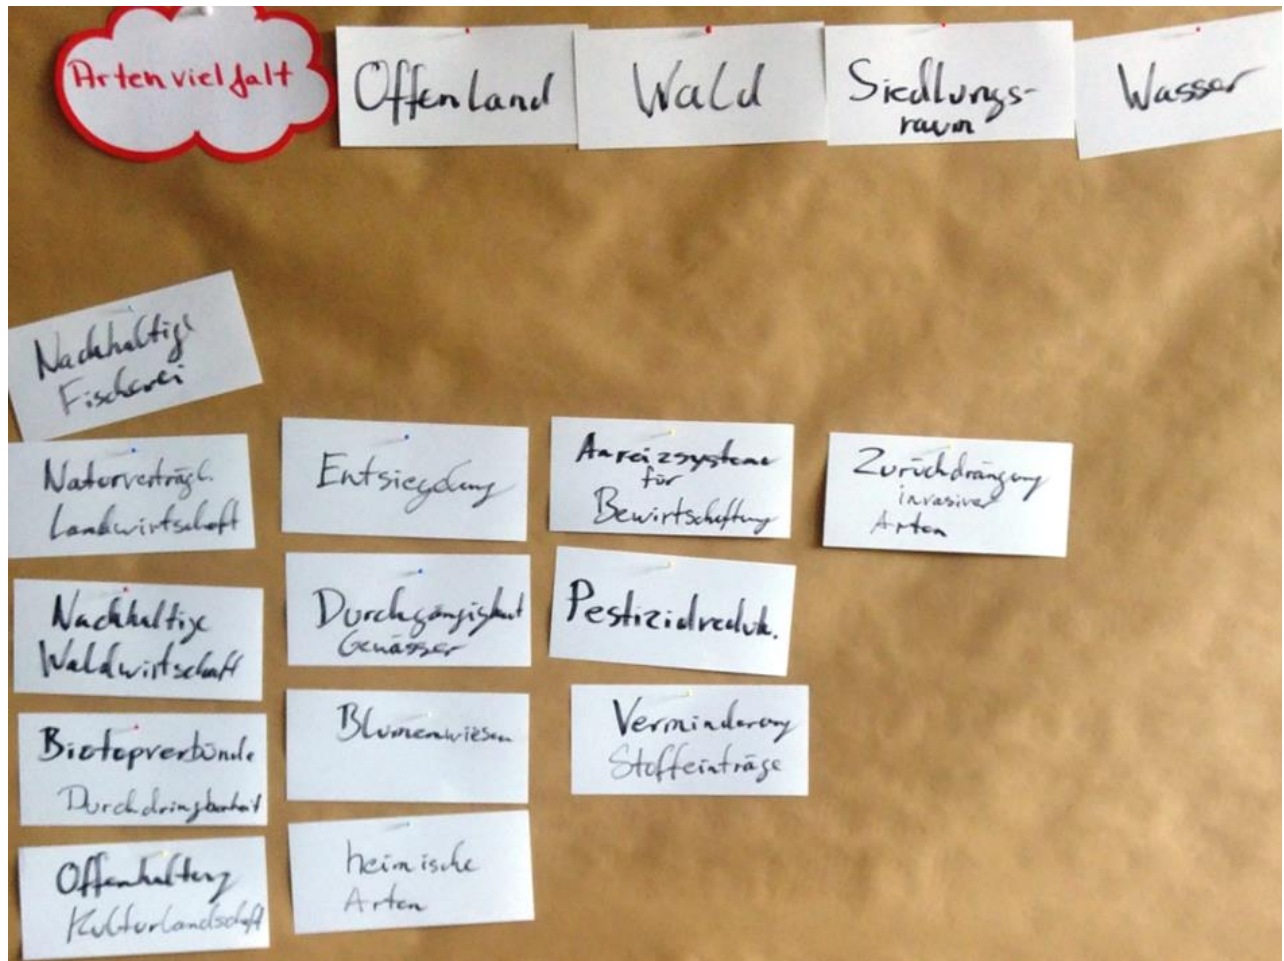 Artenvielfalt
Offenland
Wald
Siedlungs-
raum
Wasser
Nachhaltige
Fischerei
Naturverträgl.
Landwirtschaft
Nachhaltige
Waldwirtschaft
Biotopverbünde
Durchdringbarkeit
Offenhaltung
Kulturlandschaft
Entsieglung
Durchgängigkeit
Gewässer
Blumenwiesen
heimische
Arten
Anreizsysteme
für
Bewirtschaftung
Pestizidreduk.
Verminderung
Stoffeinträge
Zurückdrängung
invasiver
Arten